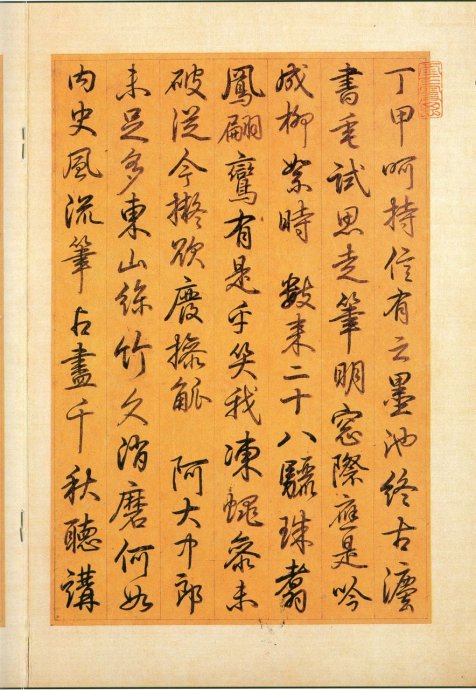 丁甲呵持信有之墨池終古灋
書垂試思走筆明窓際應是吟
成柳絮時 數来二十八驪珠翥
鳳翩鸞有是乎笑我凍蠅参未
破從今擬欲廢操觚 阿大中郎
未足多東山絲竹久消磨何如
内史風流筆占盡千秋聽講